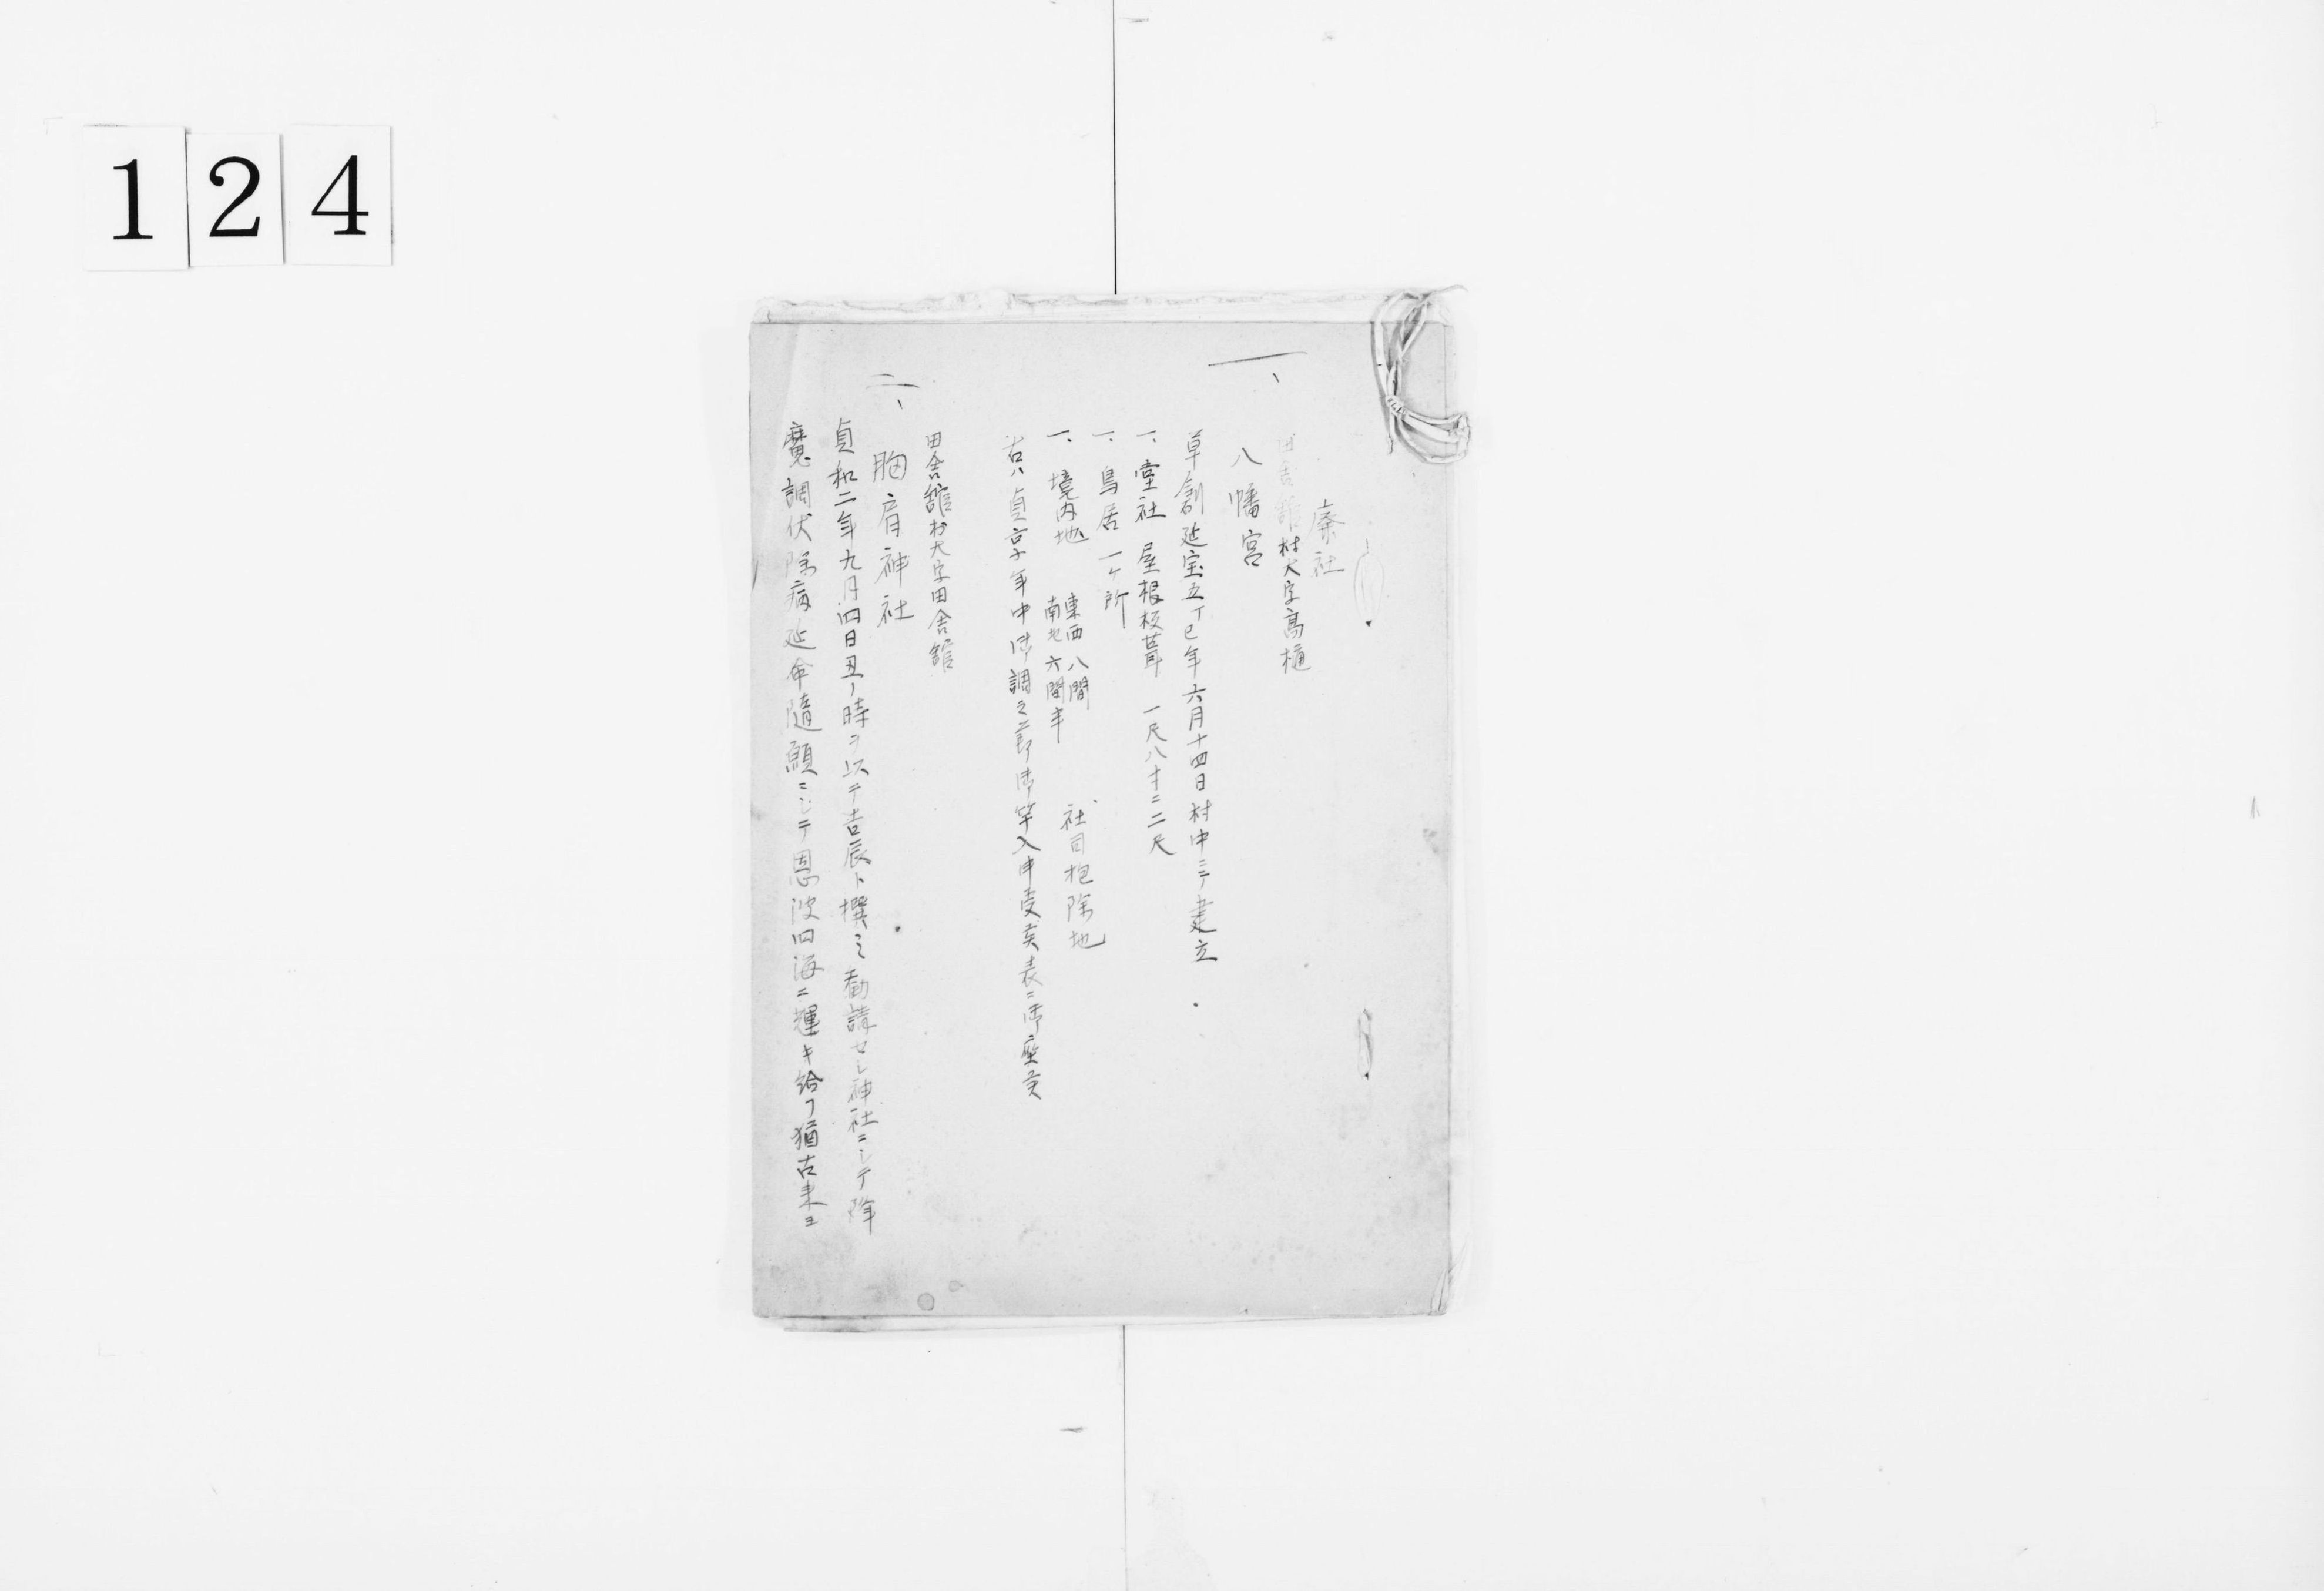 124
廃社
田舎館村大字高樋
一、
八幡宮
草創延宝五丁巳年六月十四日村中ニテ建立
一、堂社 屋根板葺 一尺八寸ニ二尺
一、鳥居 一ヶ所
一、境内地 東西八間
南北六間半
社司抱除地
右ハ貞享年中御調之節御竿入申受
表ニ御座候
田舎館村大字田舎館
二、
胸肩神社
貞和二年九月四日丑ノ時ヲ以テ吉辰ト撰ミ勧請セシ神社ニシテ降
魔調伏除病延命随願ニシテ恩波四海ニ輝キ給フ猶古来ヨ